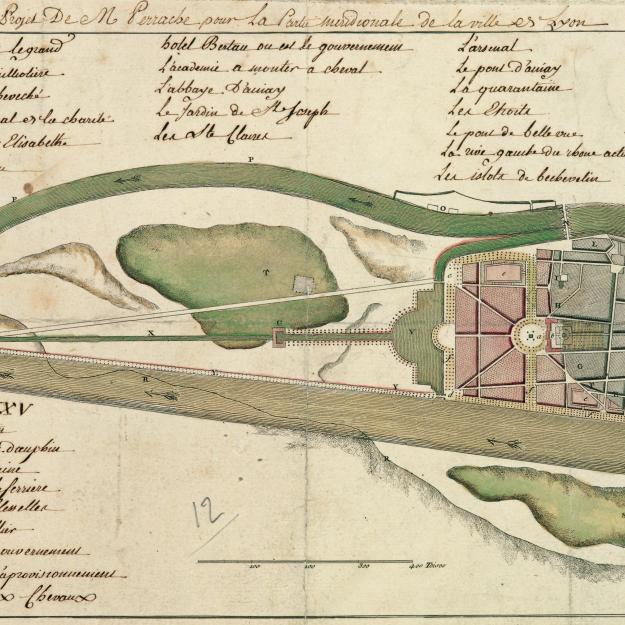 Projet De M Perrache pour La Partie meridionale de la ville de Lyon
le grand
uillotiere
heveché
al et la charité
Elisabethe
hotel Bertau ou est le gouvernement
L'academie a monter a cheval
L'abbaye D'ainay
Le Jardin de St Joseph
Les Ste Claires
L'arsenal
Le pont d'ainay
La quarantaine
Les Etroits
Le pont de belle vue
La rive gauche du rhone actu
Les islots de bechevelin
P
P
O
L
T
C
X
V
H
O
R
V
Y
R
XV
dauphin
ine
ferriere
ouvernement
aprovisionnement
x Chevaux
12
100
200
300
400 Thises